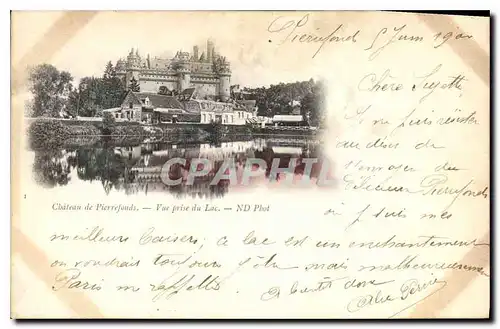 Pierrefond 5 Juin 190
Chère Suzette
Je ne puis résister
au désir de
t'envoyer du
Pierrefond
où je suis mes
CPArama.com
Château de Pierrefonds. — Vue prise du Lac. — ND Phot
meilleurs baisers, ce lac est un enchantement
on voudrait toujours y être mais malheureusement
Paris me rappelle. A bientôt donc